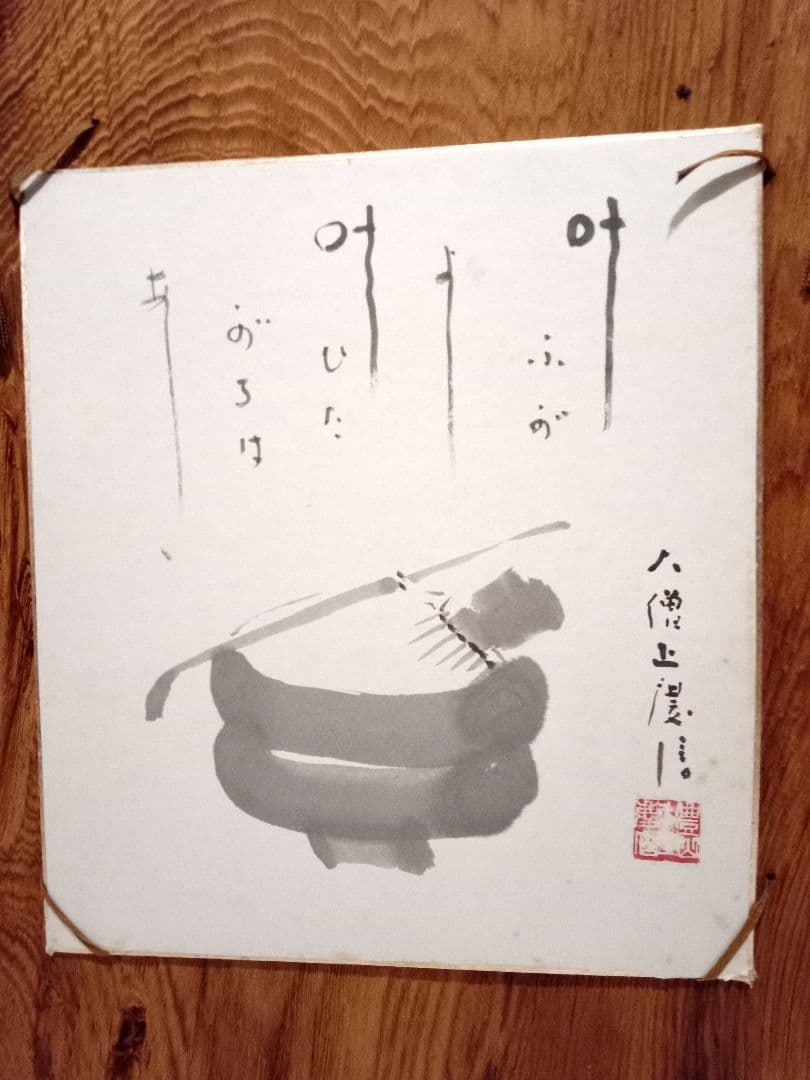 叶ふが
よし
叶ひた
がるは
あし
大僧正